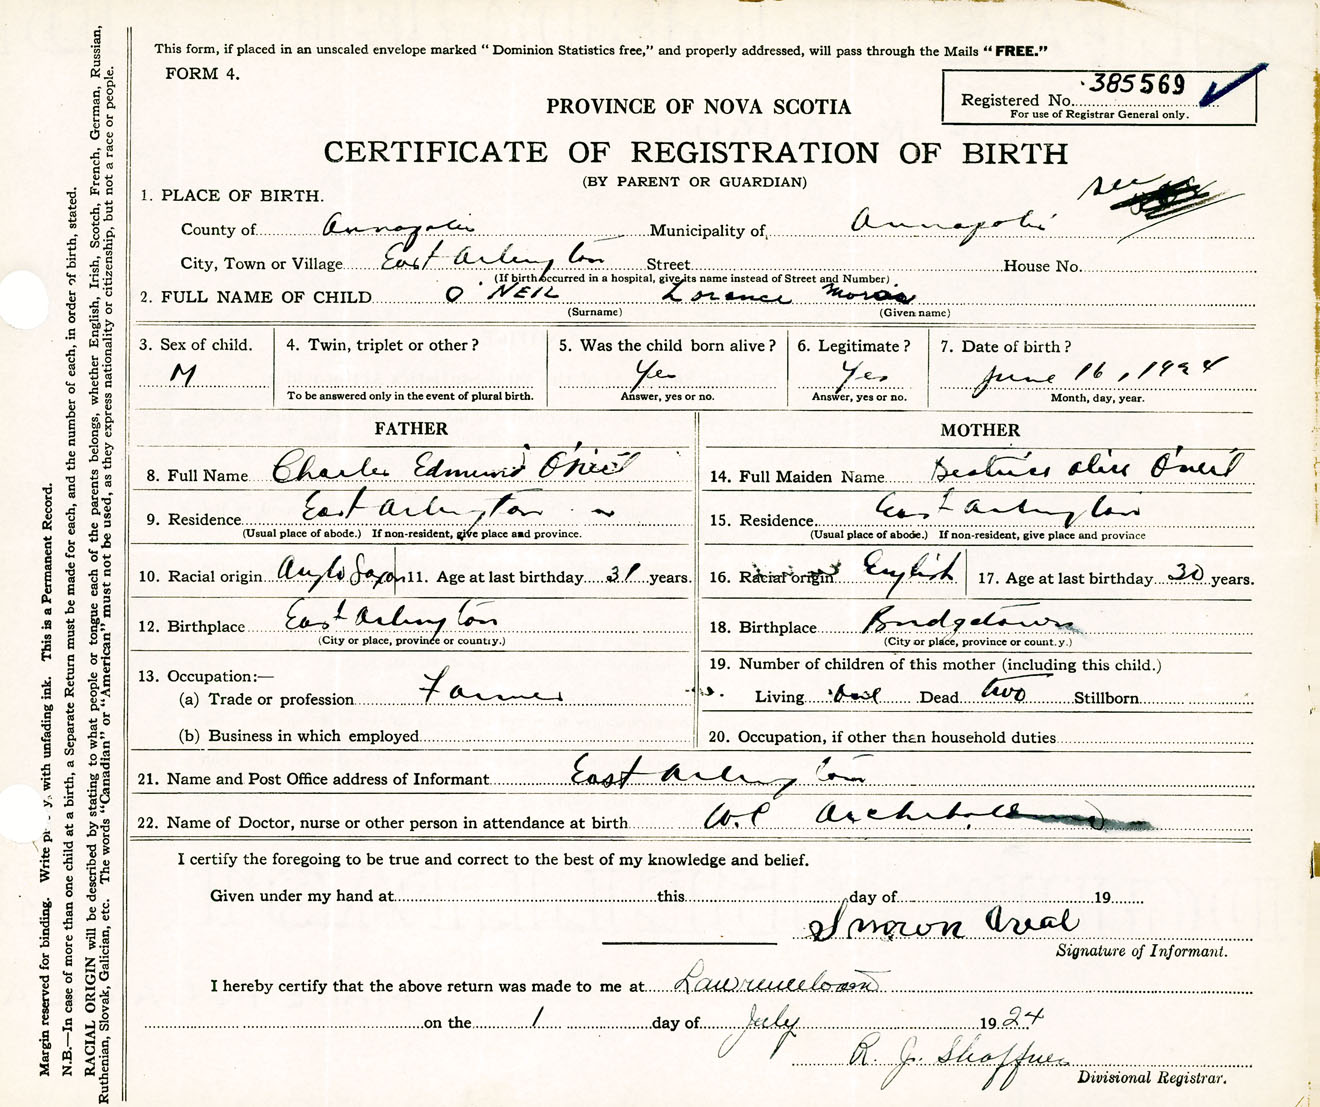 This form, if placed in an unscaled envelope marked “Dominion Statistics free,” and properly addressed, will pass through the Mails “FREE.”
FORM 4.
385569
Registered No.
For use of Registrar General only.
PROVINCE OF NOVA SCOTIA
CERTIFICATE OF REGISTRATION OF BIRTH
(BY PARENT OR GUARDIAN)
see
1. PLACE OF BIRTH.
County of Annapolis Municipality of Annapolis
City, Town or Village East Arlington Street House No.
(If birth occurred in a hospital, give its name instead of Street and Number)
2. FULL NAME OF CHILD O'NEIL Lorance
(Surname) (Given name)
3. Sex of child. 4. Twin, triplet or other? 5. Was the child born alive? 6. Legitimate? 7. Date of birth?
M Yes Yes June 16, 1924
To be answered only in the event of plural birth. Answer, yes or no. Answer, yes or no. Month, day, year.
FATHER MOTHER
8. Full Name Charles Edmund O'Neil 14. Full Maiden Name Beatrice Alice O'Neil
9. Residence East Arlington 15. Residence. East Arlington
(Usual place of abode.) If non-resident, give place and province. (Usual place of abode.) If non-resident, give place and province
10. Racial origin Anglo Saxon 11. Age at last birthday 31 years. 16. Racial origin English 17. Age at last birthday 30 years.
12. Birthplace East Arlington 18. Birthplace Bridgetown
(City or place, province or country.) (City or place, province or count.y.)
13. Occupation:— 19. Number of children of this mother (including this child.)
(a) Trade or profession Farmer Living Dead two Stillborn
(b) Business in which employed 20. Occupation, if other than household duties
21. Name and Post Office address of Informant East Arlington
22. Name of Doctor, nurse or other person in attendance at birth
I certify the foregoing to be true and correct to the best of my knowledge and belief.
Given under my hand at this day of 19
Signature of Informant.
I hereby certify that the above return was made to me at Lawrencetown
on the 1 day of July 1924
R. J. Shaffner
Divisional Registrar.
Margin reserved for binding. Write with unfading ink. This is a Permanent Record.
N.B.—In case of more than one child at a birth, a Separate Return must be made for each, and the number of each, in order of birth, stated.
RACIAL ORIGIN will be described by stating to what people or tongue each of the parents belongs, whether English, Irish, Scotch, French, German, Russian,
Ruthenian, Slovak, Galician, etc. The words “Canadian” or “American” must not be used, as they express nationality or citizenship, but not a race or people.